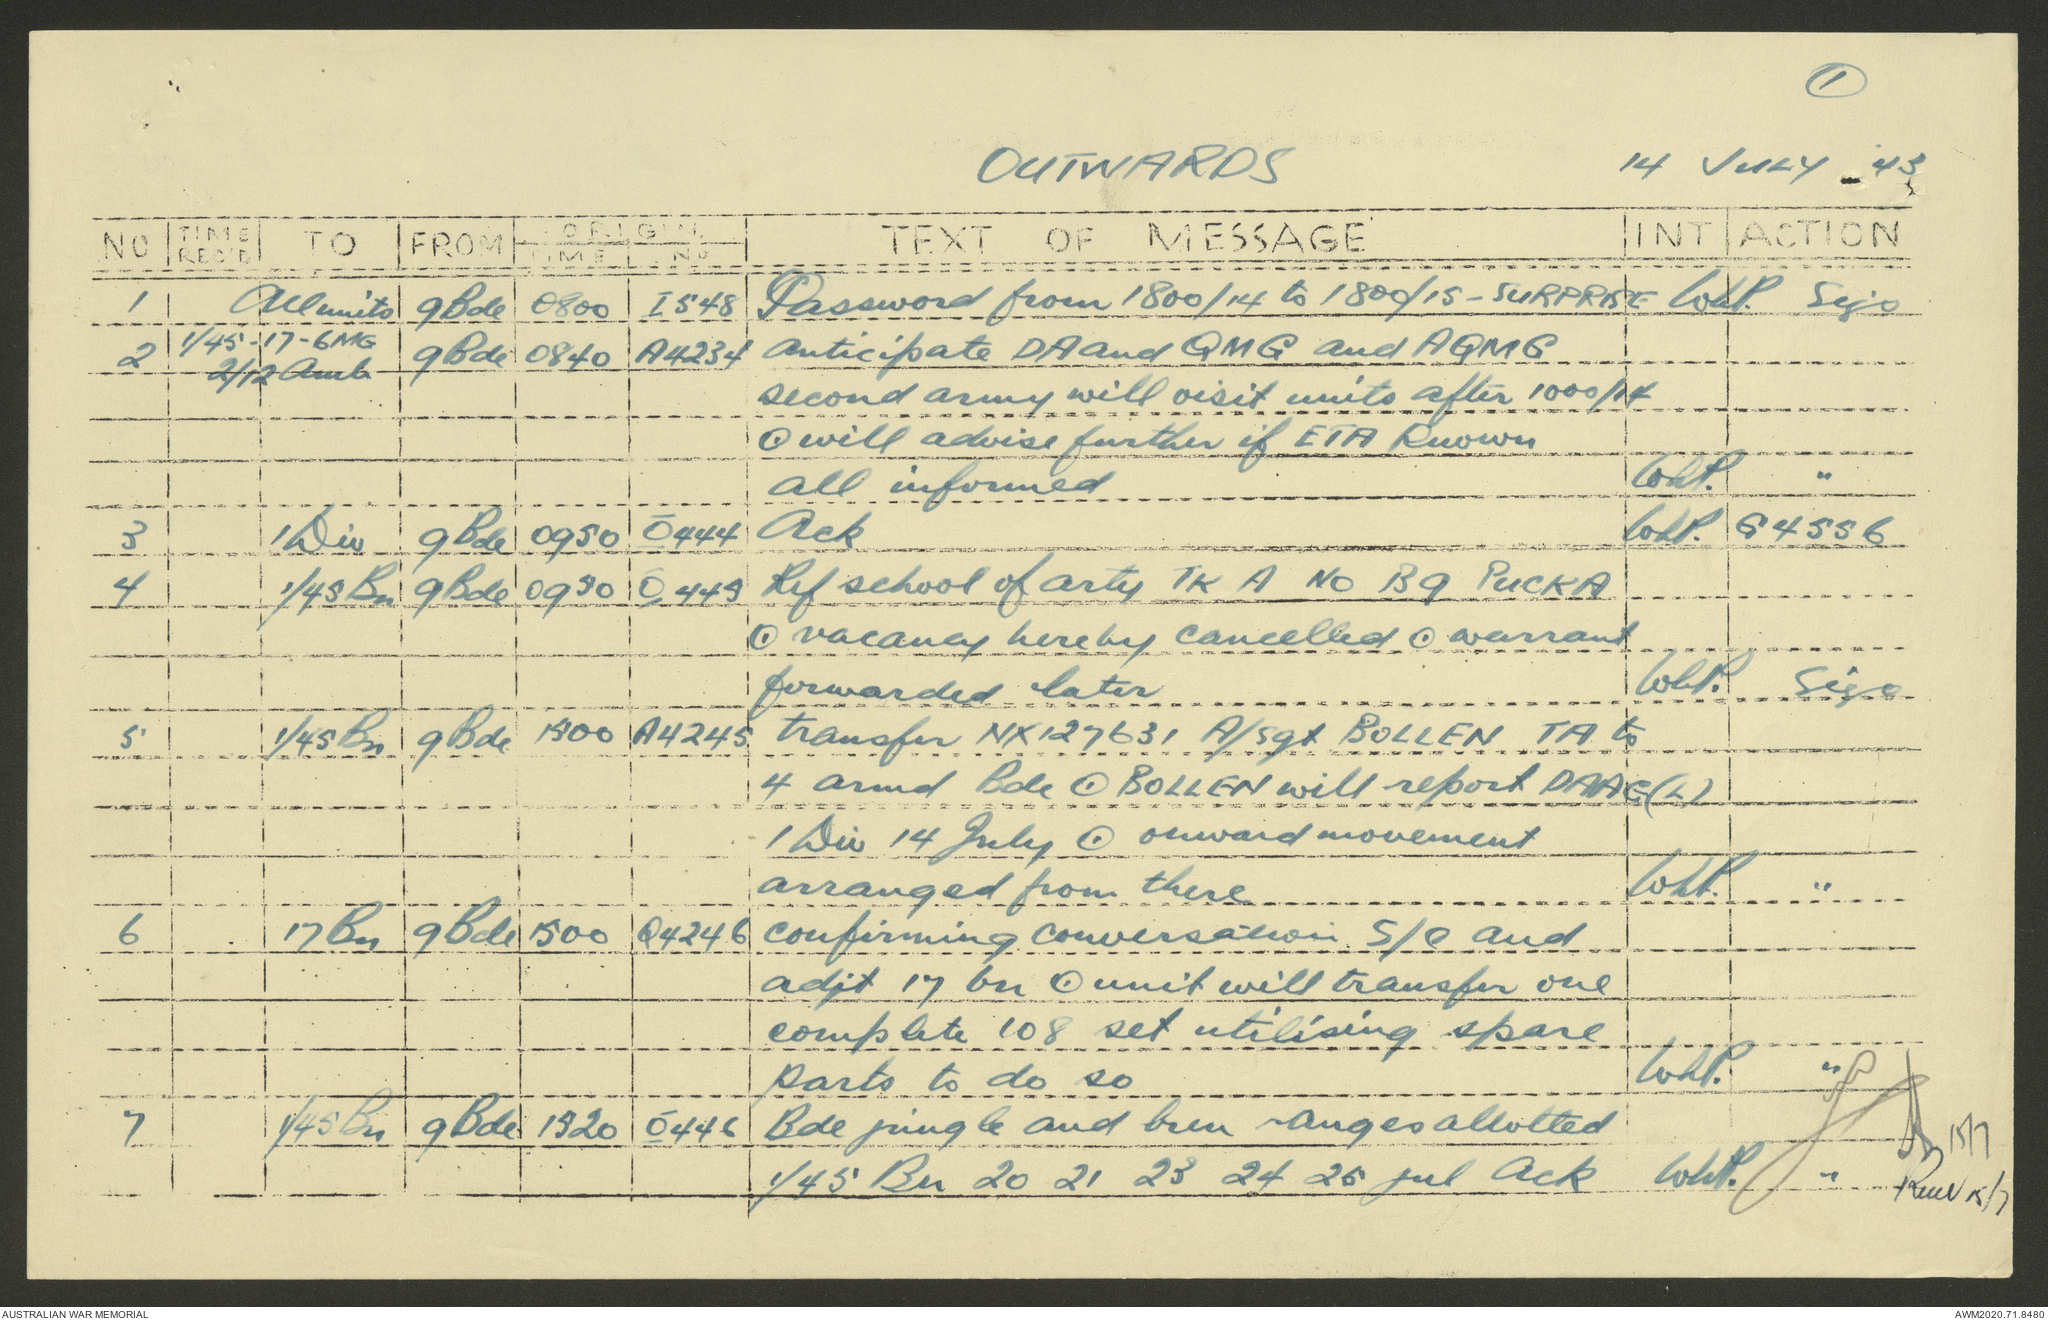 1
OUTWARDS 14 JULY 43
NO TIME REC'D TO FROM ORIGIN TIME NO TEXT OF MESSAGE INT ACTION
1 All units 9 Bde 0800 I548 Password from 1800/14 to 1800/15 - SURPRISE WhP. Sigs
2 1/45-17-6MG 2/12 Amb 9 Bde 0840 A4234 anticipate DA and QMG and AQMG
second army will visit units after 1000/14
⊙ will advise further if ETA Known
all informed WhP. "
3 1 Div 9 Bde 0950 O444 Ack WhP. G4556
4 1/45 Bn 9 Bde 0950 O445 Ref school of arty TK A No B9 PUCKA
⊙ vacancy hereby cancelled ⊙ warrant
forwarded later WhP. Sigs
5 1/45 Bn 9 Bde 1500 A4245 transfer NX127631 A/Sgt BOLLEN TA to
4 armd Bde ⊙ BOLLEN will report DAAG(L)
1 Div 14 July ⊙ onward movement
arranged from there WhP. "
6 17 Bn 9 Bde 1500 Q4246 confirming conversation S/C and
adjt 17 bn ⊙ unit will transfer one
complete 108 set utilising spare
parts to do so WhP. "
7 1/45 Bn 9 Bde 1520 O446 Bde jungle and bren ranges allotted
1/45 Bn 20 21 23 24 25 jul Ack WhP. "
15/7
15/7
AUSTRALIAN WAR MEMORIAL AWM2020.71.8480